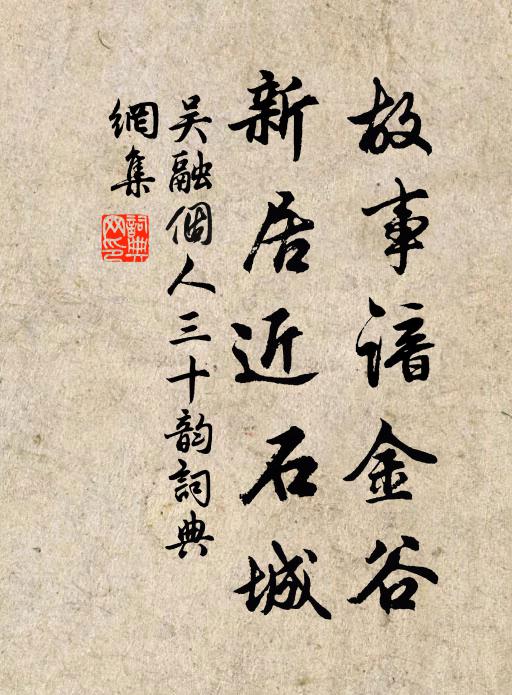 故事谙金谷
新居近石城
吴融個人三十韵詞典
網集
詞典网印